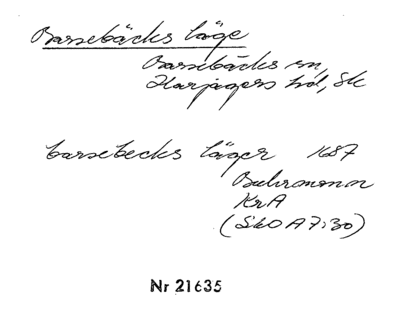 Barsebäcks läge
Barsebäcks sn,
Harjagers hd, Sk
barsebecks läger 1687
Buhrmann
KrA
(SkO A7:30)
Nr 21635